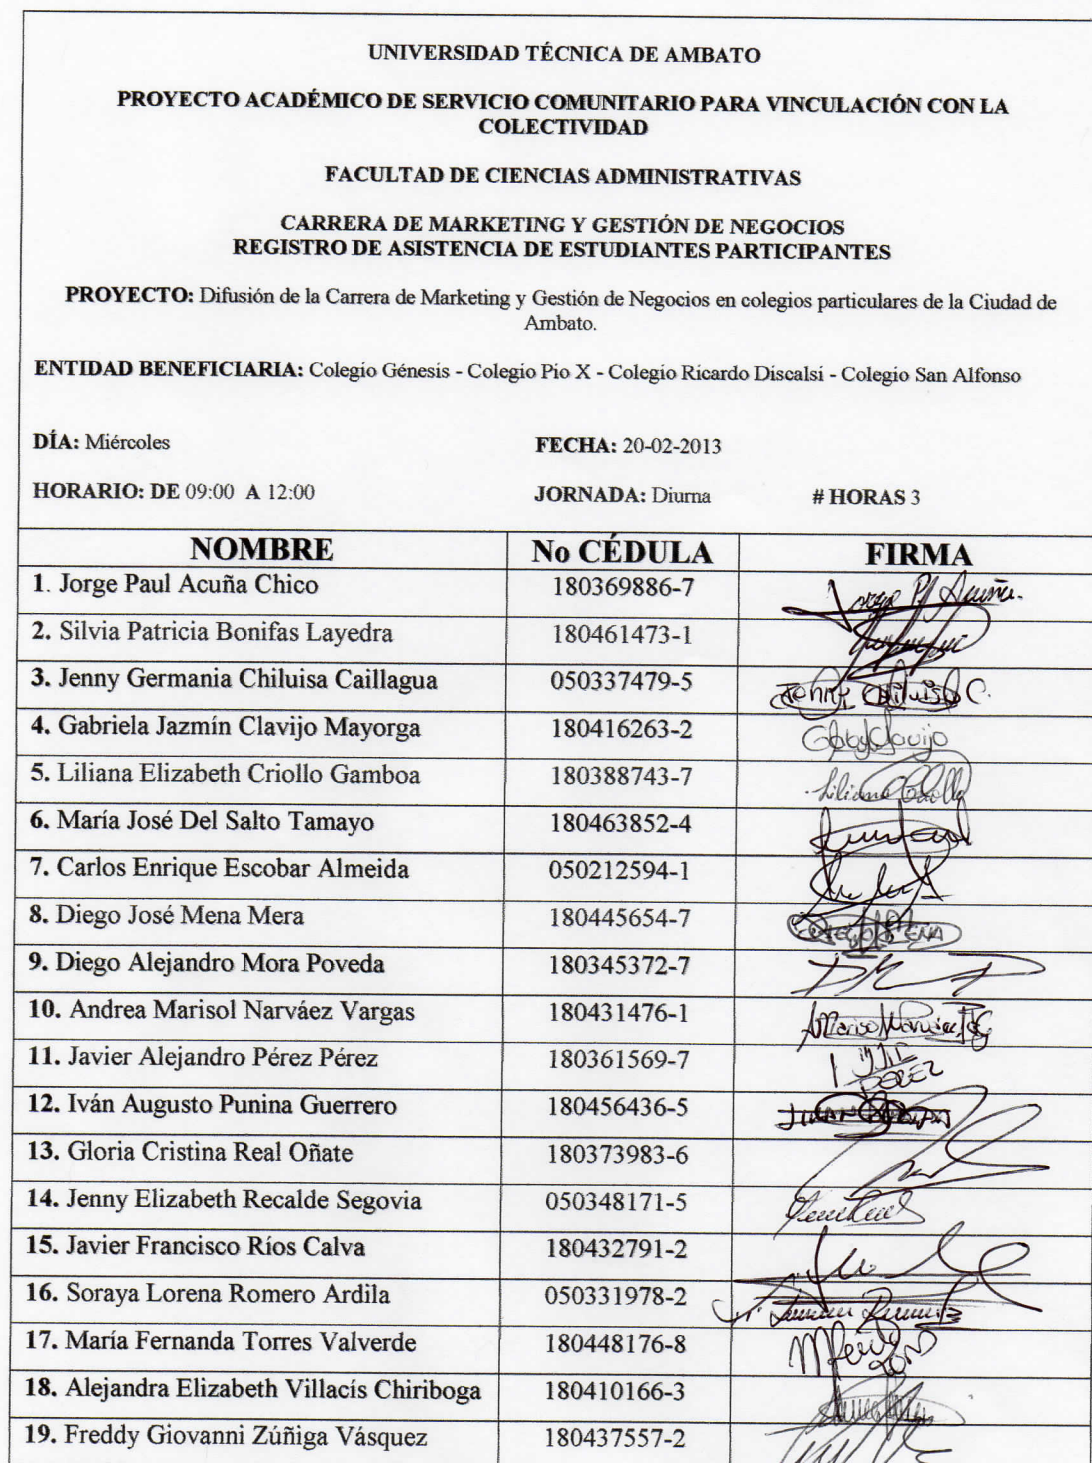 UNIVERSIDAD TÉCNICA DE AMBATO
PROYECTO ACADÉMICO DE SERVICIO COMUNITARIO PARA VINCULACIÓN CON LA
COLECTIVIDAD
FACULTAD DE CIENCIAS ADMINISTRATIVAS
CARRERA DE MARKETING Y GESTIÓN DE NEGOCIOS
REGISTRO DE ASISTENCIA DE ESTUDIANTES PARTICIPANTES
PROYECTO: Difusión de la Carrera de Marketing y Gestión de Negocios en colegios particulares de la Ciudad de
Ambato.
ENTIDAD BENEFICIARIA: Colegio Génesis - Colegio Pio X - Colegio Ricardo Discalsi - Colegio San Alfonso
DÍA: Miércoles FECHA: 20-02-2013
HORARIO: DE 09:00 A 12:00 JORNADA: Diurna # HORAS 3
NOMBRE No CÉDULA FIRMA
1. Jorge Paul Acuña Chico 180369886-7 Jorge Pl Acuña.
2. Silvia Patricia Bonifas Layedra 180461473-1
3. Jenny Germania Chiluisa Caillagua 050337479-5 Jenny Chiluisa C.
4. Gabriela Jazmín Clavijo Mayorga 180416263-2 Gaby Clavijo
5. Liliana Elizabeth Criollo Gamboa 180388743-7 Liliana Criollo
6. María José Del Salto Tamayo 180463852-4
7. Carlos Enrique Escobar Almeida 050212594-1
8. Diego José Mena Mera 180445654-7 DIEGO MENA
9. Diego Alejandro Mora Poveda 180345372-7
10. Andrea Marisol Narváez Vargas 180431476-1
11. Javier Alejandro Pérez Pérez 180361569-7 PEREZ
12. Iván Augusto Punina Guerrero 180456436-5
13. Gloria Cristina Real Oñate 180373983-6
14. Jenny Elizabeth Recalde Segovia 050348171-5
15. Javier Francisco Ríos Calva 180432791-2
16. Soraya Lorena Romero Ardila 050331978-2
17. María Fernanda Torres Valverde 180448176-8
18. Alejandra Elizabeth Villacís Chiriboga 180410166-3
19. Freddy Giovanni Zúñiga Vásquez 180437557-2